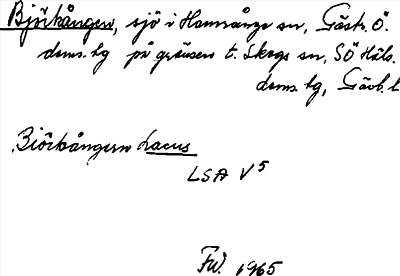 Björkången, sjö i Hamrånge sn, Gästr. Ö.
doms.tg på gränsen t. Skogs sn, SÖ Häls.
doms.tg, Gävb.l
Biörkångern Lacus
LSA V5
FW. 1965